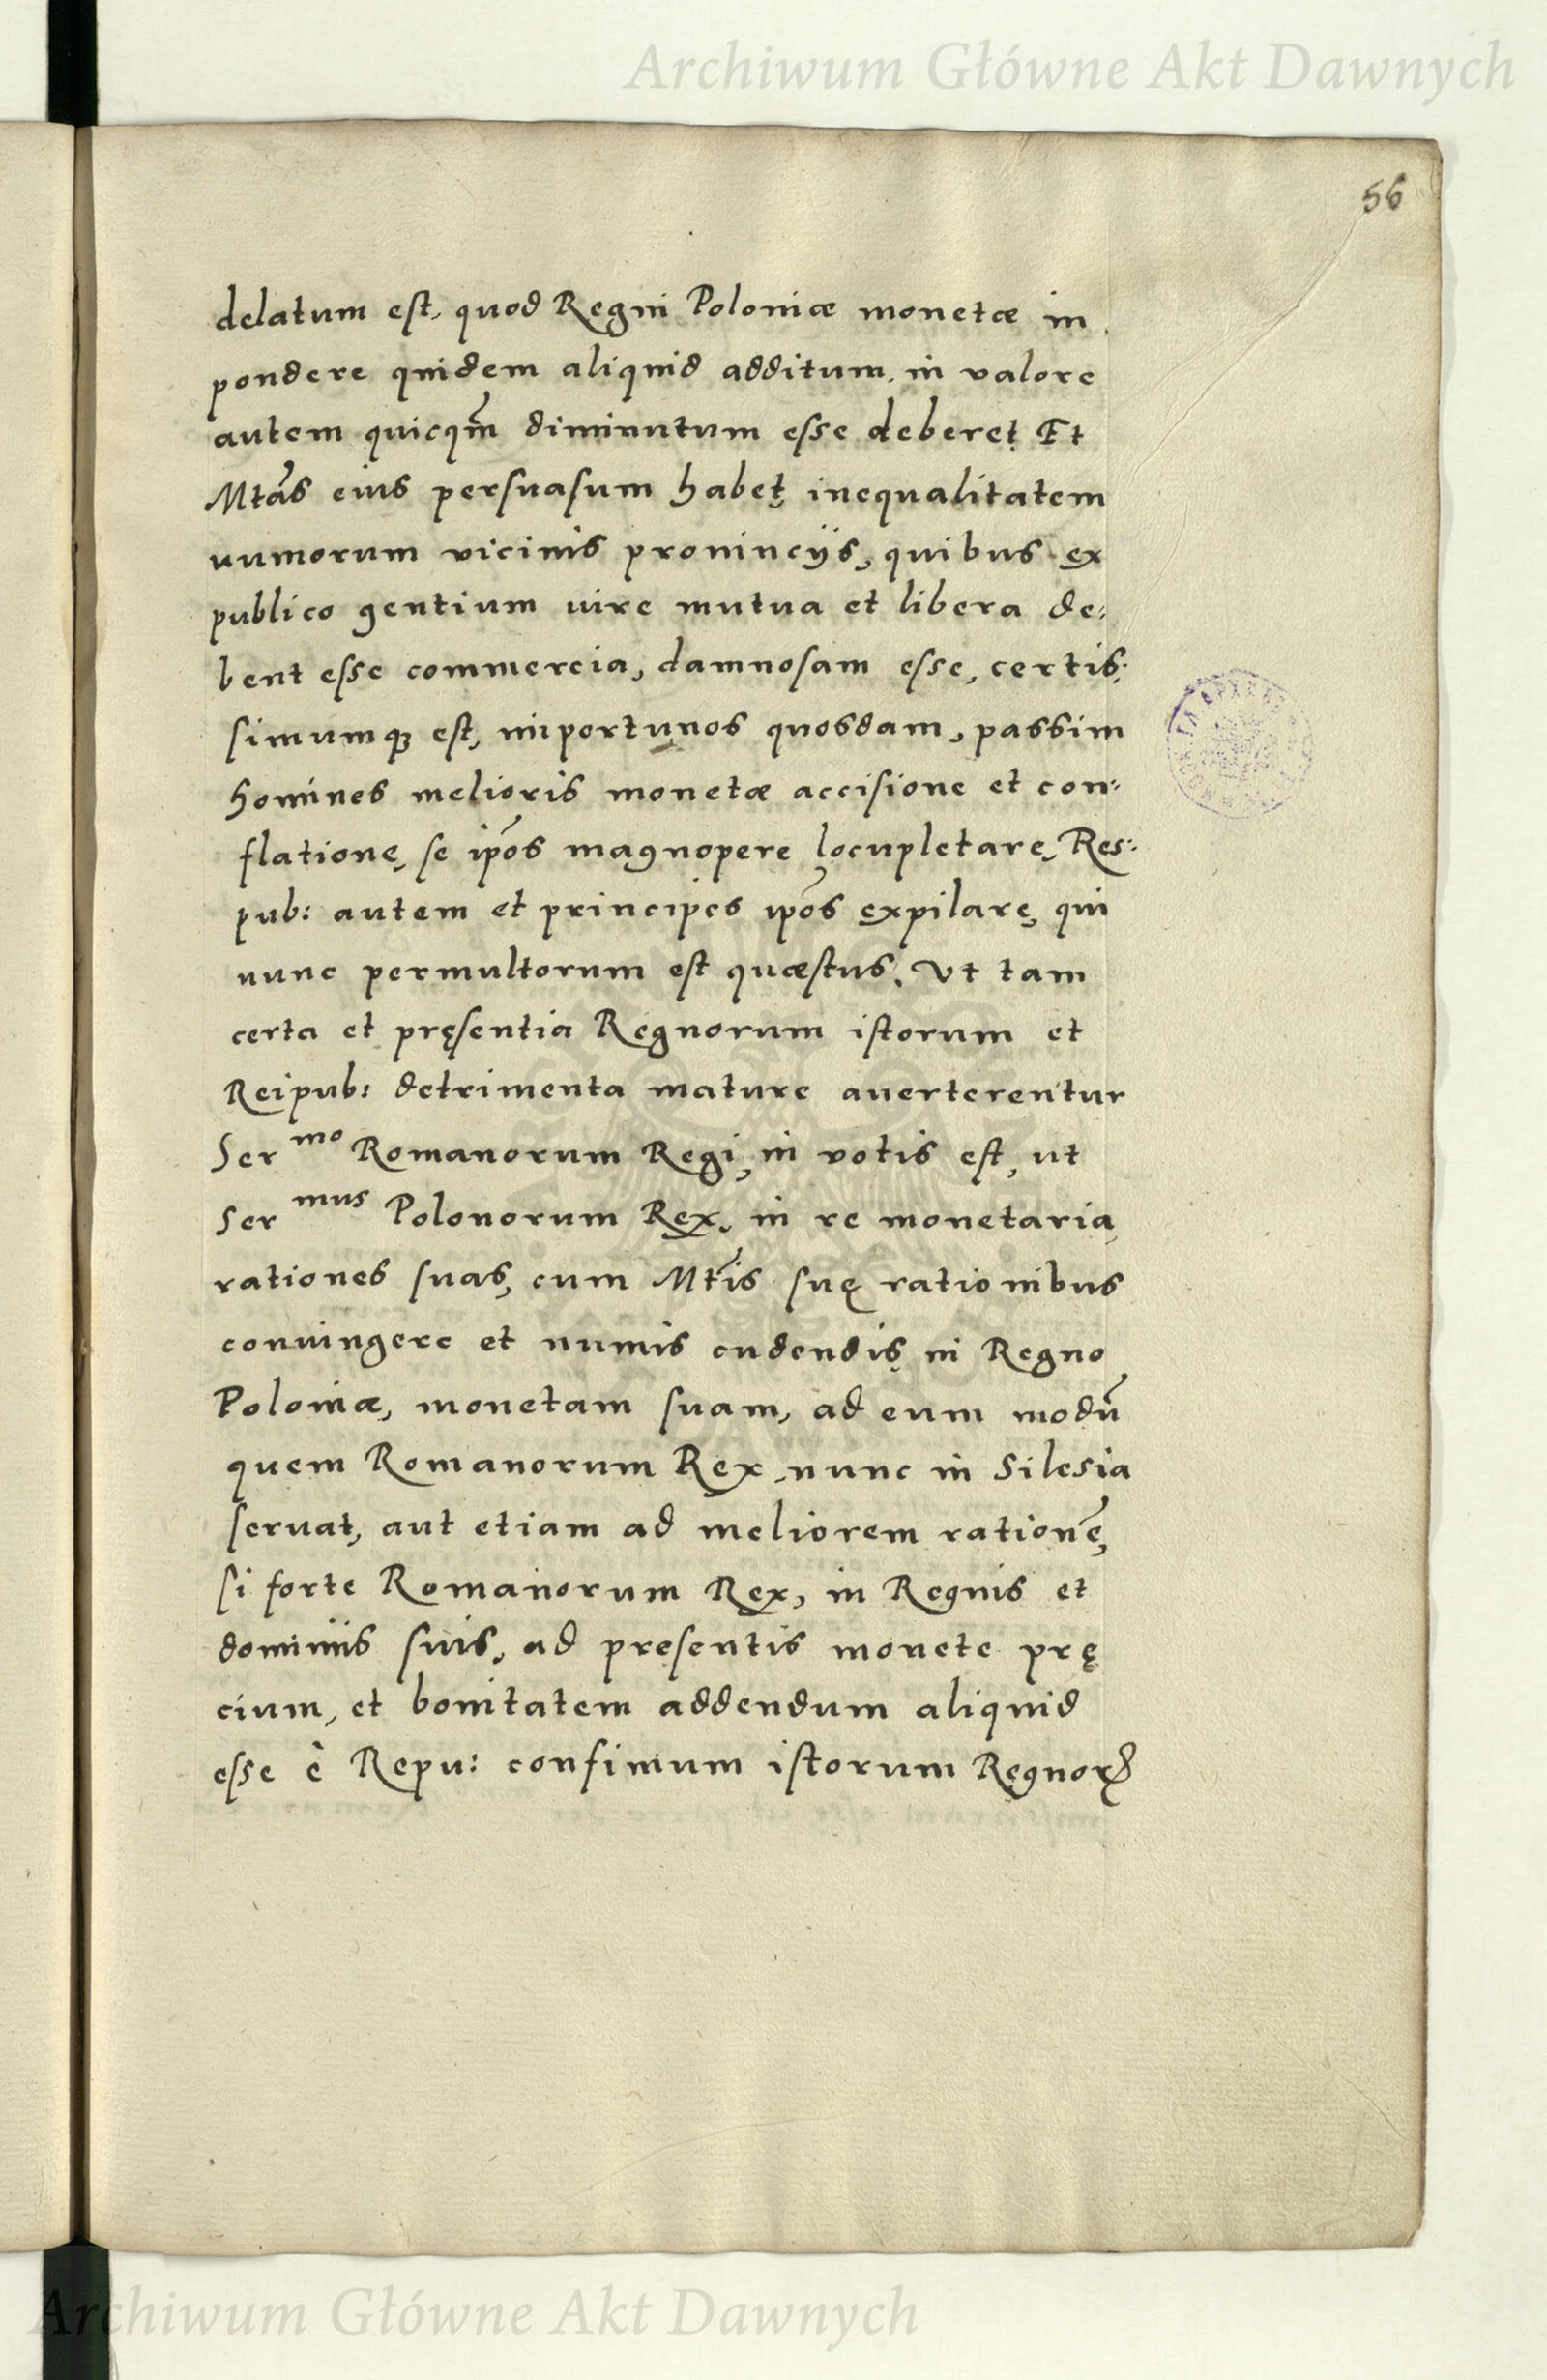 Archiwum Główne Akt Dawnych
56
delatum est, quod Regni Poloniæ monetæ in
pondere quidem aliquid additum, in valore
autem quicqm̃ diminutum esse deberet, Et
Mtãs eius persuasum habet, inequalitatem
numorum vicinis prouincijs, quibus ex
publico gentium iure mutua et libera de:
bent esse commercia, damnosam esse, certis:
simumq; est, importunos quosdam, passim
homines melioris monetæ accisione et con:
flatione, se ip̃os magnopere locupletare, Res:
pub: autem et principes ip̃os expilare, qui
nunc permultorum est quæstus. Vt tam
certa et pręsentia Regnorum istorum et
Reipub: detrimenta mature auerterentur
Ser mo Romanorum Regi, in votis est, ut
Ser mus Polonorum Rex, in re monetaria
rationes suas, cum Mtĩs suę rationibus
coniungere et numis cudendis, in Regno
Poloniæ, monetam suam, ad eum modũ
quem Romanorum Rex, nunc in Silesia
seruat, aut etiam ad meliorem rationẽ,
si forte Romanorum Rex, in Regnis et
dominiis suis, ad presentis monete prę
cium, et bonitatem addendum aliquid
esse è Repu: confinium istorum Regnorꝝ
Archiwum Główne Akt Dawnych